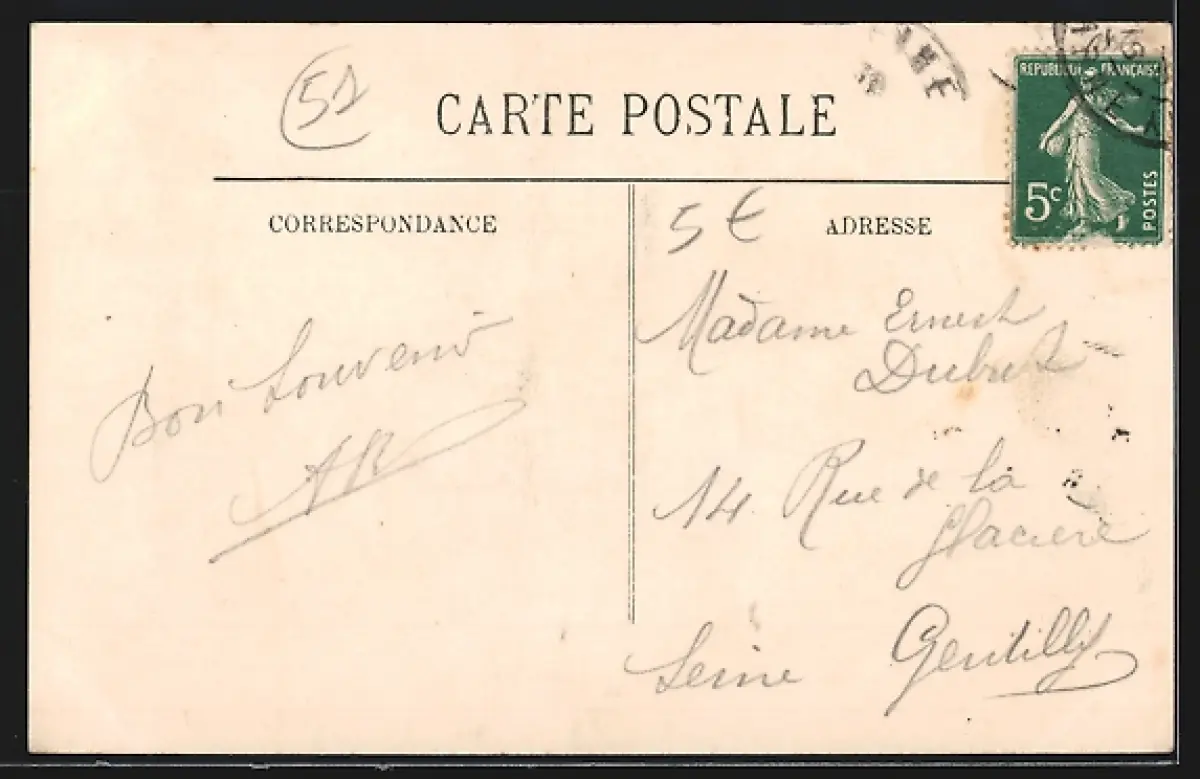 51
CARTE POSTALE
REPUBLIQUE FRANÇAISE
5c
POSTES
CORRESPONDANCE
5 €
ADRESSE
Madame Ernest
Bon Souvenir
AR
14 Rue de la
Glacière
Seine Gentilly